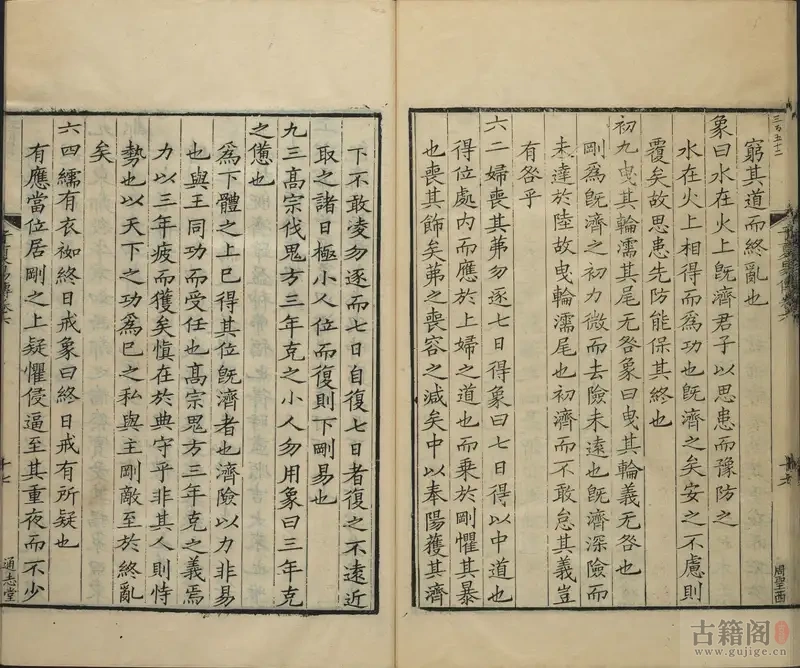 窮其道而終亂也
象曰水在火上旣濟君子以思患而豫防之
水在火上相得而爲功也旣濟之矣安之不慮則
覆矣故思患先防能保其終也
初九曳其輪濡其尾无咎象曰曳其輪義无咎也
剛爲旣濟之初力微而去險未遠也旣濟深險而
未達於陸故曳輪濡尾也初濟而不敢怠其義豈
有咎乎
六二婦喪其茀勿逐七日得象曰七日得以中道也
得位處内而應於上婦之道也而乗於剛懼其暴
也喪其飾矣茀之喪容之減矣中以奉陽獲其濟
下不敢凌勿逐而七日自復七日者復之不遠近
取之諸日極小人位而復則下剛易也
九三髙宗伐鬼方三年克之小人勿用象曰三年克
之憊也
爲下體之上已得其位旣濟者也濟險以力非易
也與王同功而受任也髙宗鬼方三年克之義焉
力以三年疲而獲矣愼在於典守乎非其人則恃
勢也以天下之功爲已之私與主剛敵至於終亂
矣
六四繻有衣袽終日戒象曰終日戒有所疑也
有應當位居剛之上疑懼侵逼至其重夜而不少
三百五十二
周聖西
十七
通志堂
古籍阁
www.gujige.cn